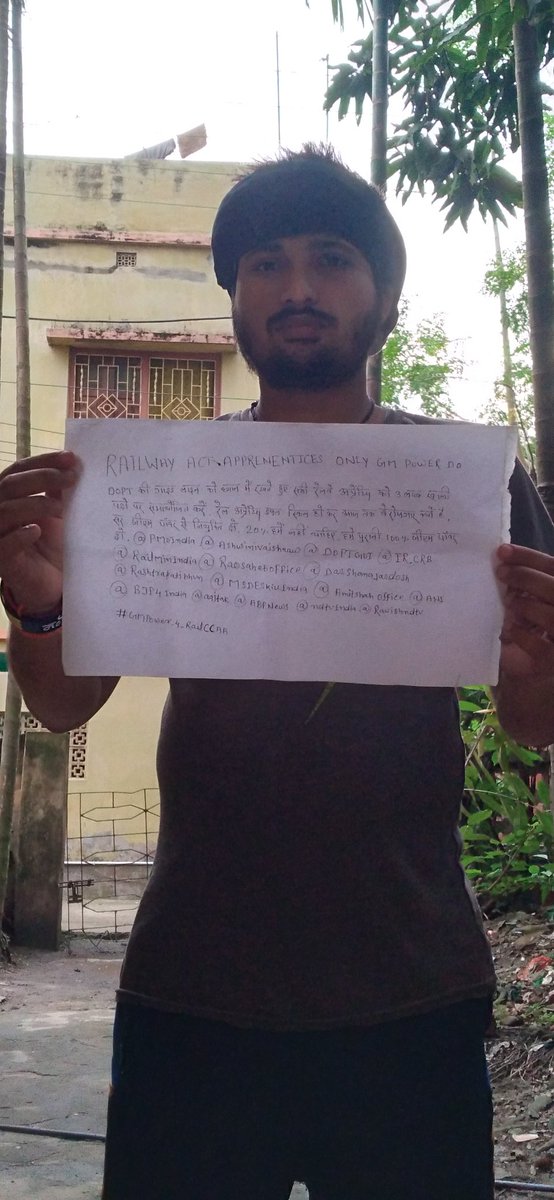 RAILWAY ACT APPRENENTICES ONLY GM POWER DO
DOPT की गाइड लाइन को ध्यान में रखते हुए सभी रेलवे अप्रेंटिस को 3 लाख खाली
पदों पर समायोजित करें, रेल अप्रेंटिस डबल स्किल हो कर आज तक बेरोजगार क्यों है,
सर जीएम पावर से नियुक्ति दें, 20% हमें नहीं चाहिए, हमें पुराना 100% जीएम पावर
दो. @ PMOIndia @ Ashwinivaishnaw @ DOPTGoVT @ IR_CRB
@ RailminIndia @ RaosahebOffice @ DarShanajardosh
@ Rashtrapatibhvn @ MSDESkillIndia @ AmitShah Office @ ANI
@ BJP4India @aajtak @ ABPNews @ ndtvIndia @ Ravishndtv
#GMPower_4_RailCCAA